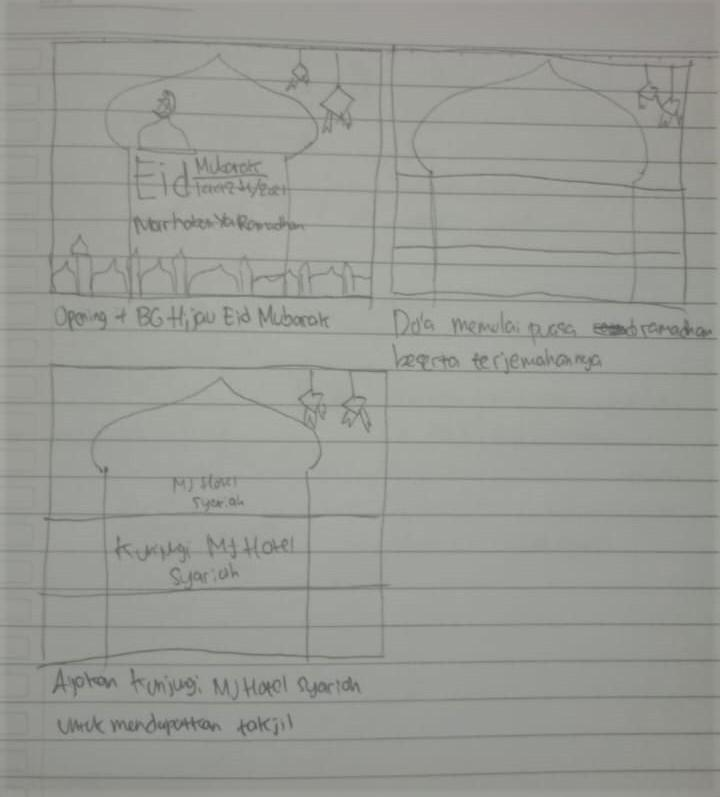 Eid Mubarak
Marhaban Ya Ramadhan
Opening + BG Hijau Eid Mubarak
Do'a memulai puasa ramadhan
beserta terjemahannya
MJ Hotel
Syariah
Kunjugi MJ Hotel
Syariah
Ajakan Kunjugi MJ Hotel Syariah
untuk mendapatkan takjil